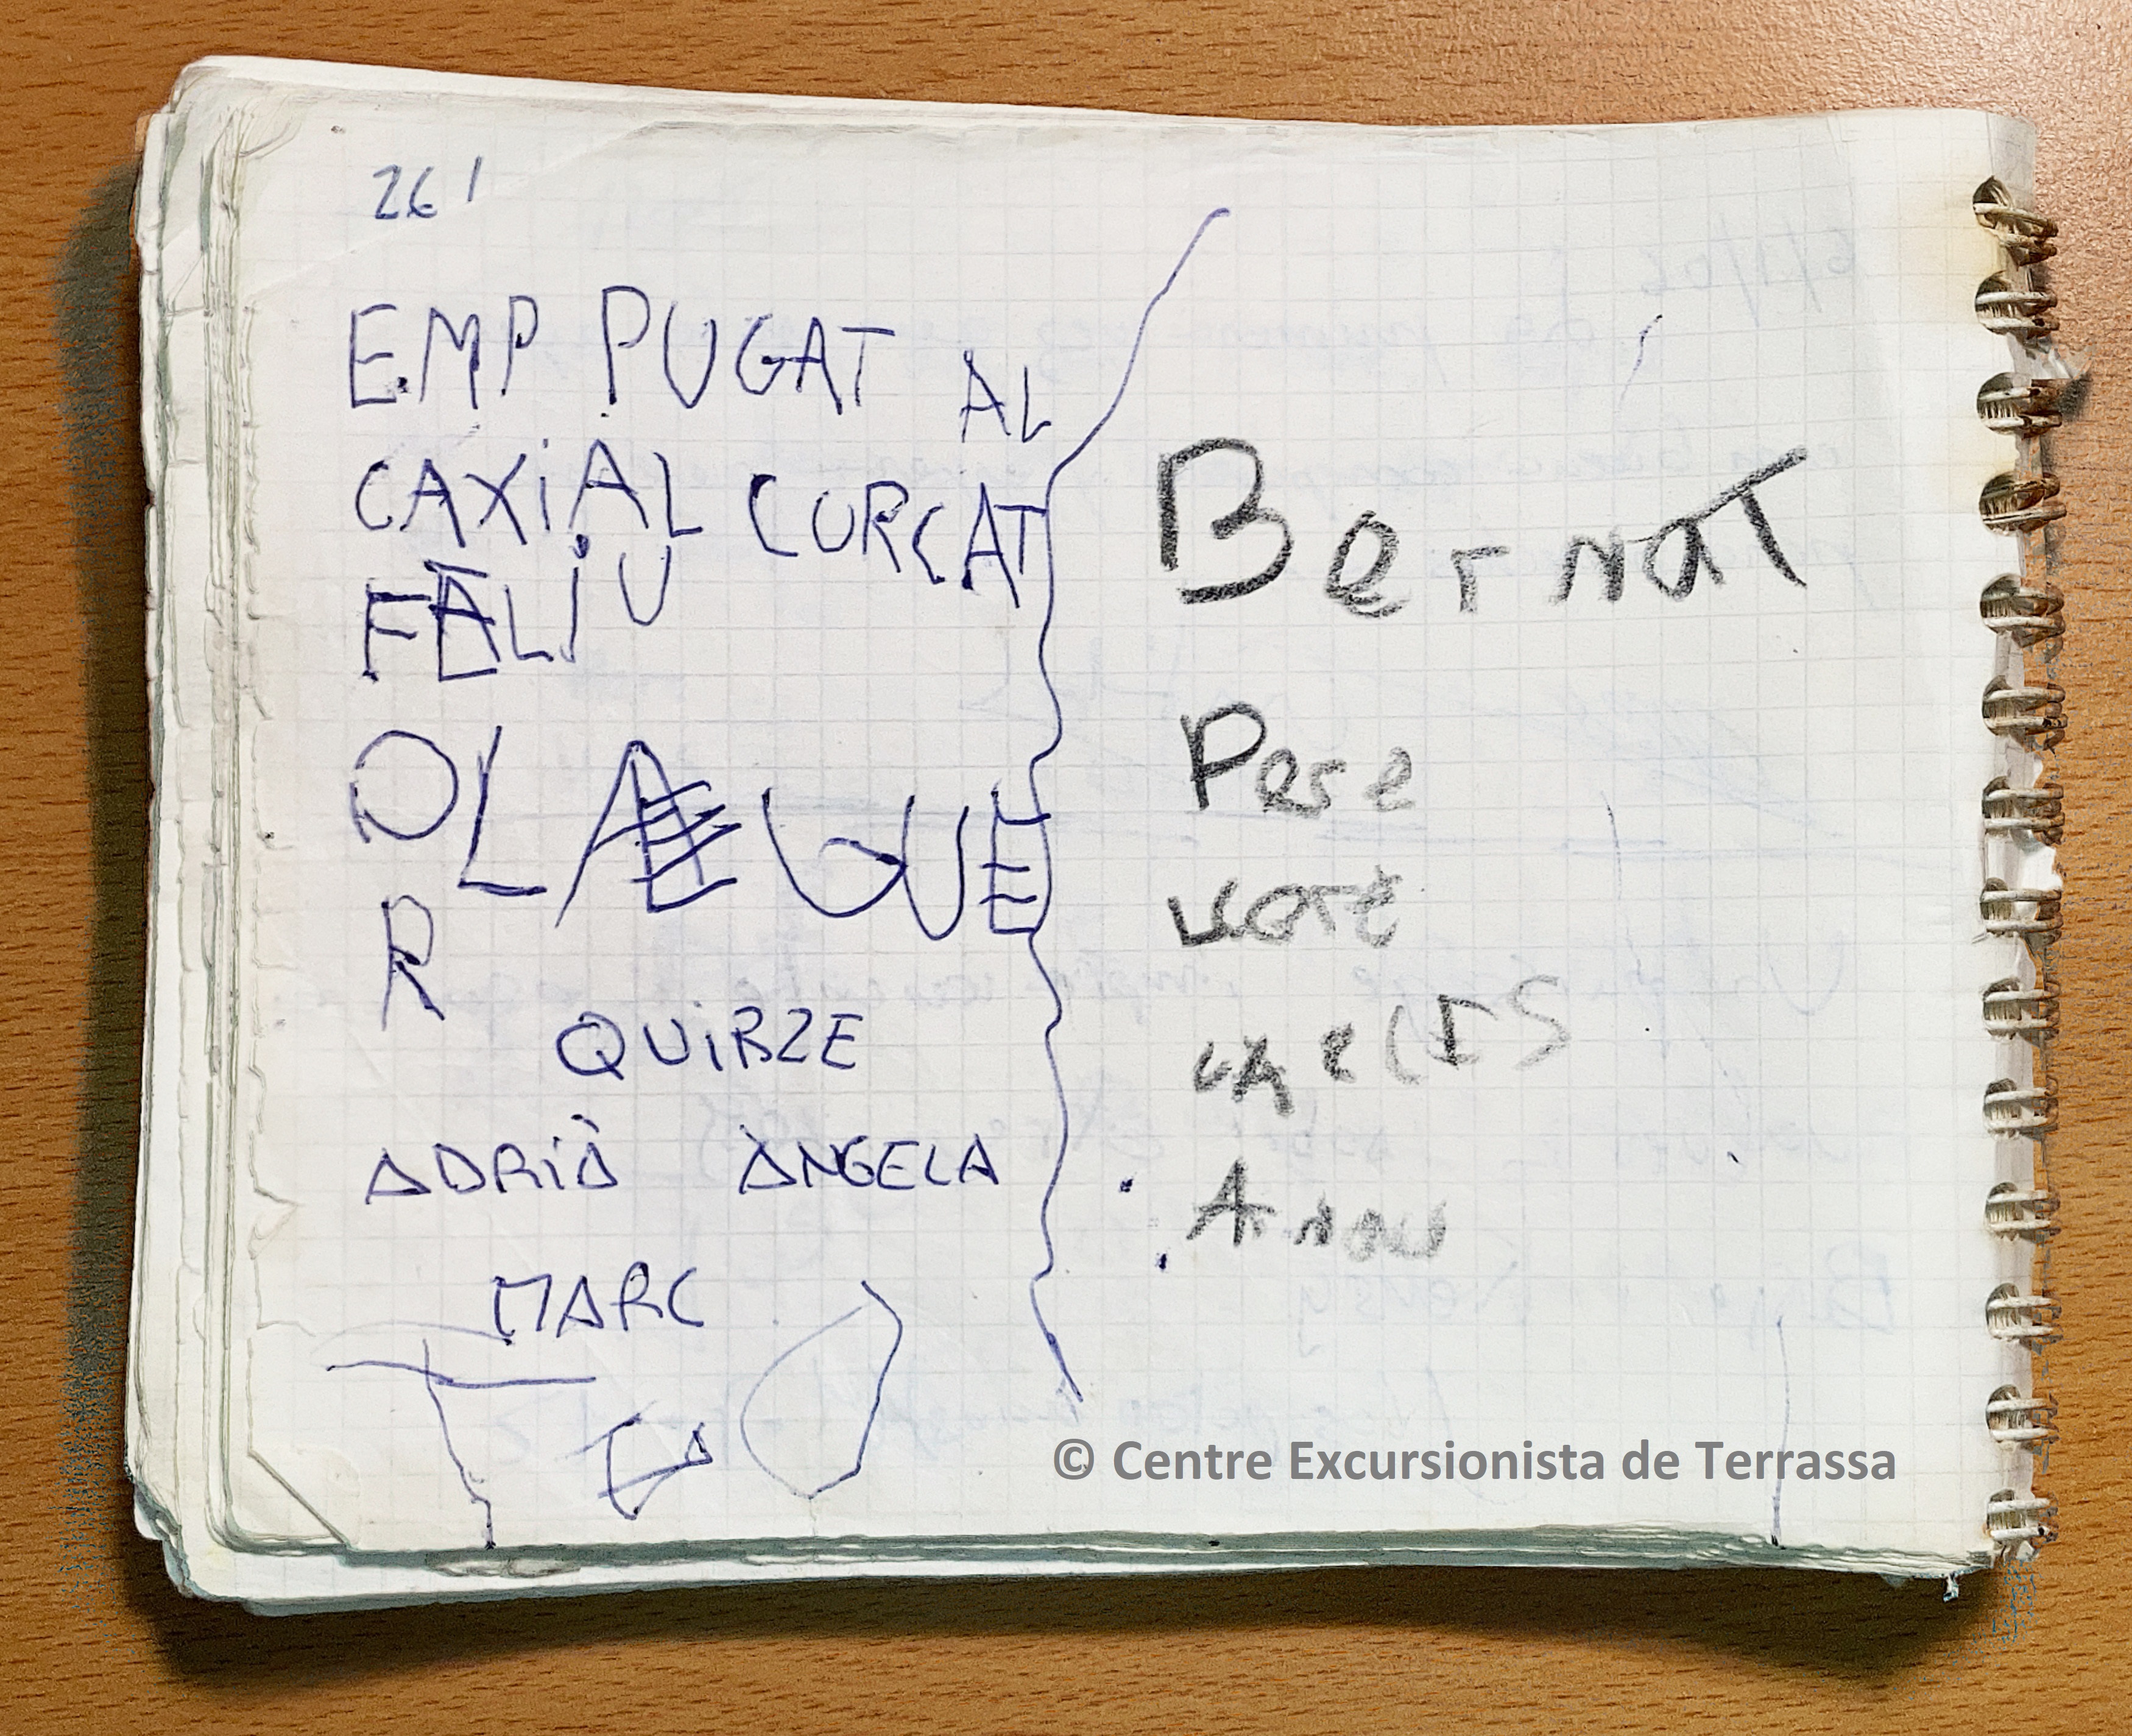 261
EMP PUGAT AL
CAXiAL CURCAT
FELiU
OLEGUE
R
QUiRZE
ADRiÀ ÀNGELA
MARC
Bernat
Pere
Arnau
© Centre Excursionista de Terrassa